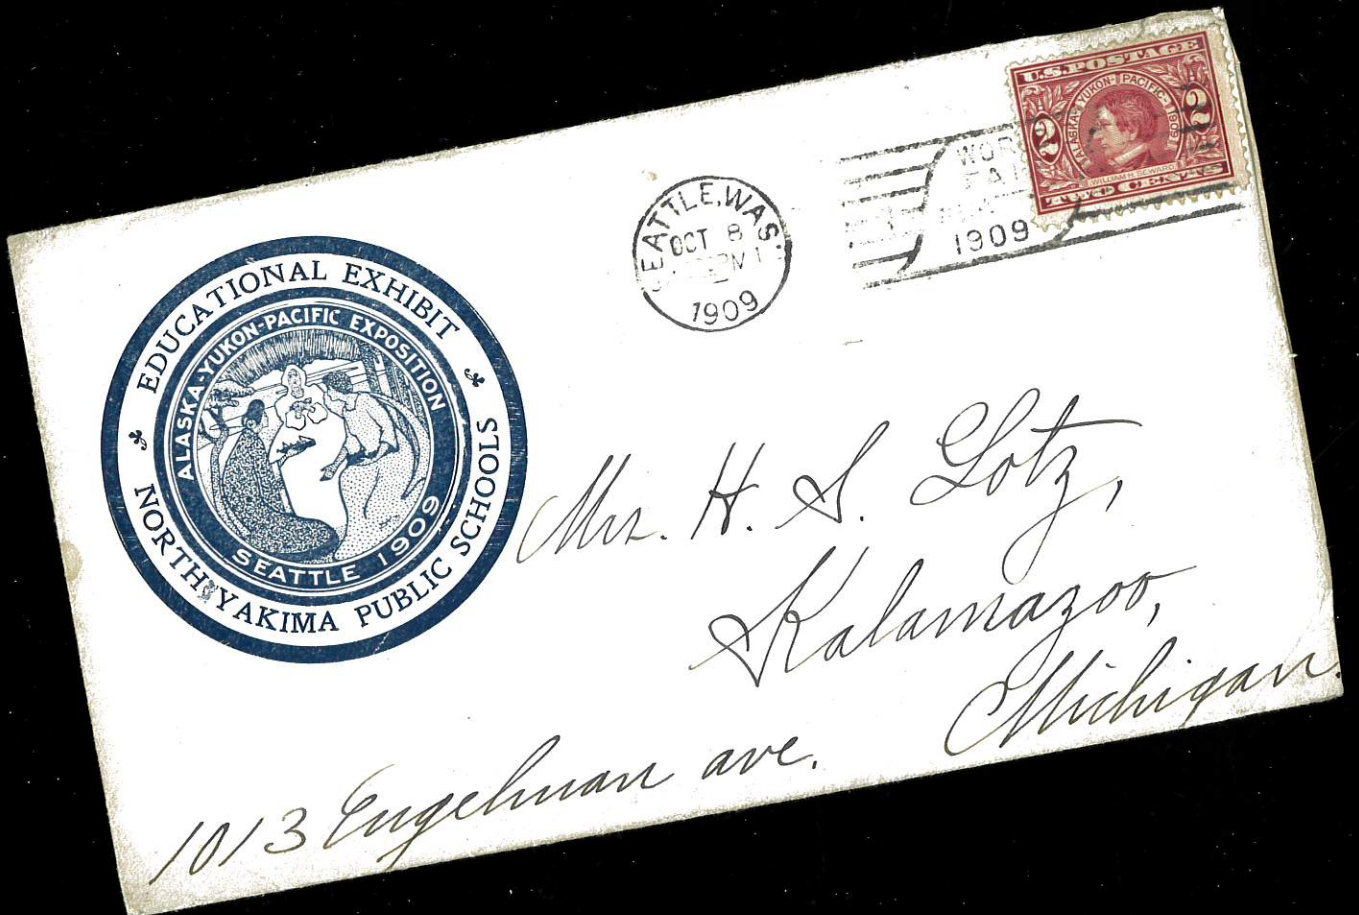 U.S. POSTAGE
ALASKA-YUKON-PACIFIC-1909
2 2
WILLIAM H. SEWARD
TWO CENTS
1909
SEATTLE, WASH.
OCT 8
1909
EDUCATIONAL EXHIBIT
ALASKA-YUKON-PACIFIC EXPOSITION
SEATTLE 1909
NORTH YAKIMA PUBLIC SCHOOLS
Mrs. H. S. Lotz,
Kalamazoo,
Michigan.
1013 Engelman ave.